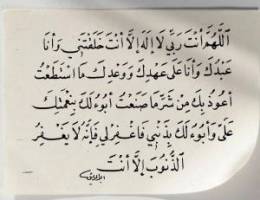 اَللّٰهُمَّ أَنْتَ رَبِّي لَا إِلٰهَ إِلَّا أَنْتَ خَلَقْتَنِي وَأَنَا
عَبْدُكَ وَأَنَا عَلَى عَهْدِكَ وَوَعْدِكَ مَا اسْتَطَعْتُ
أَعُوذُ بِكَ مِنْ شَرِّ مَا صَنَعْتُ أَبُوءُ لَكَ بِنِعْمَتِكَ
عَلَيَّ وَأَبُوءُ لَكَ بِذَنْبِي فَاغْفِرْ لِي فَإِنَّهُ لَا يَغْفِرُ
الذُّنُوبَ إِلَّا أَنْتَ